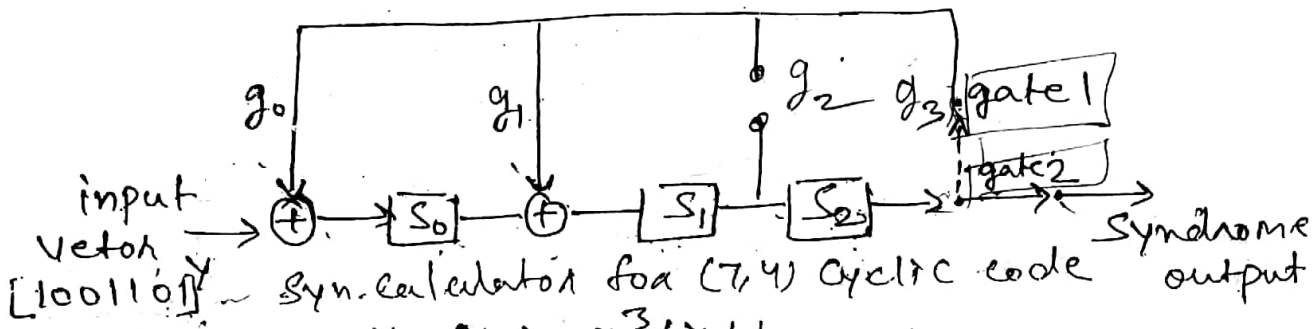 g₀
g₁
g₂
g₃
gate1
gate2
input
vetor
[1001101]
S₀
S₁
S₂
Syndrome
output
Syn. calculator for (7,4) cyclic code